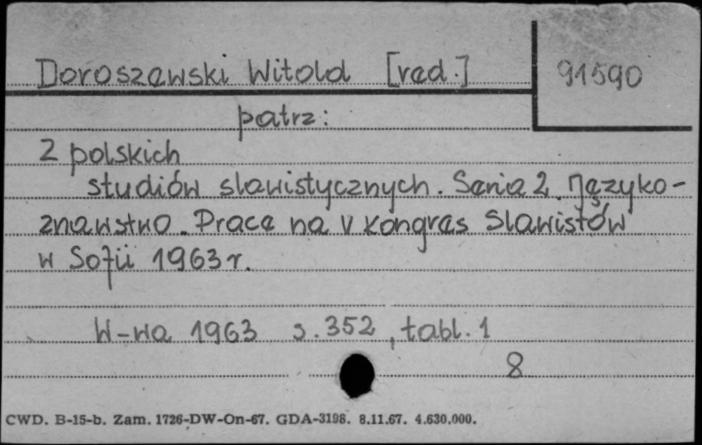 Doroszewski Witold [red.] 91590
patrz:
Z polskich
studiów slawistycznych. Seria 2. Języko-
znawstwo. Prace na V Kongres Slawistów
w Sofii 1963 r.
W-wa 1963 s. 352, tabl. 1
8
CWD. B-15-b. Zam. 1726-DW-On-67. GDA-3198. 8.11.67. 4.630.000.